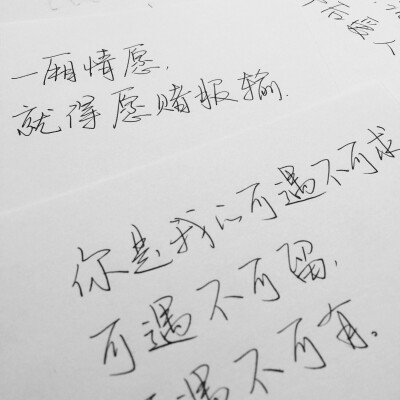 后爱人
一厢情愿,
就得愿赌服输.
你是我的可遇不可求
可遇不可留,
可遇不可有。